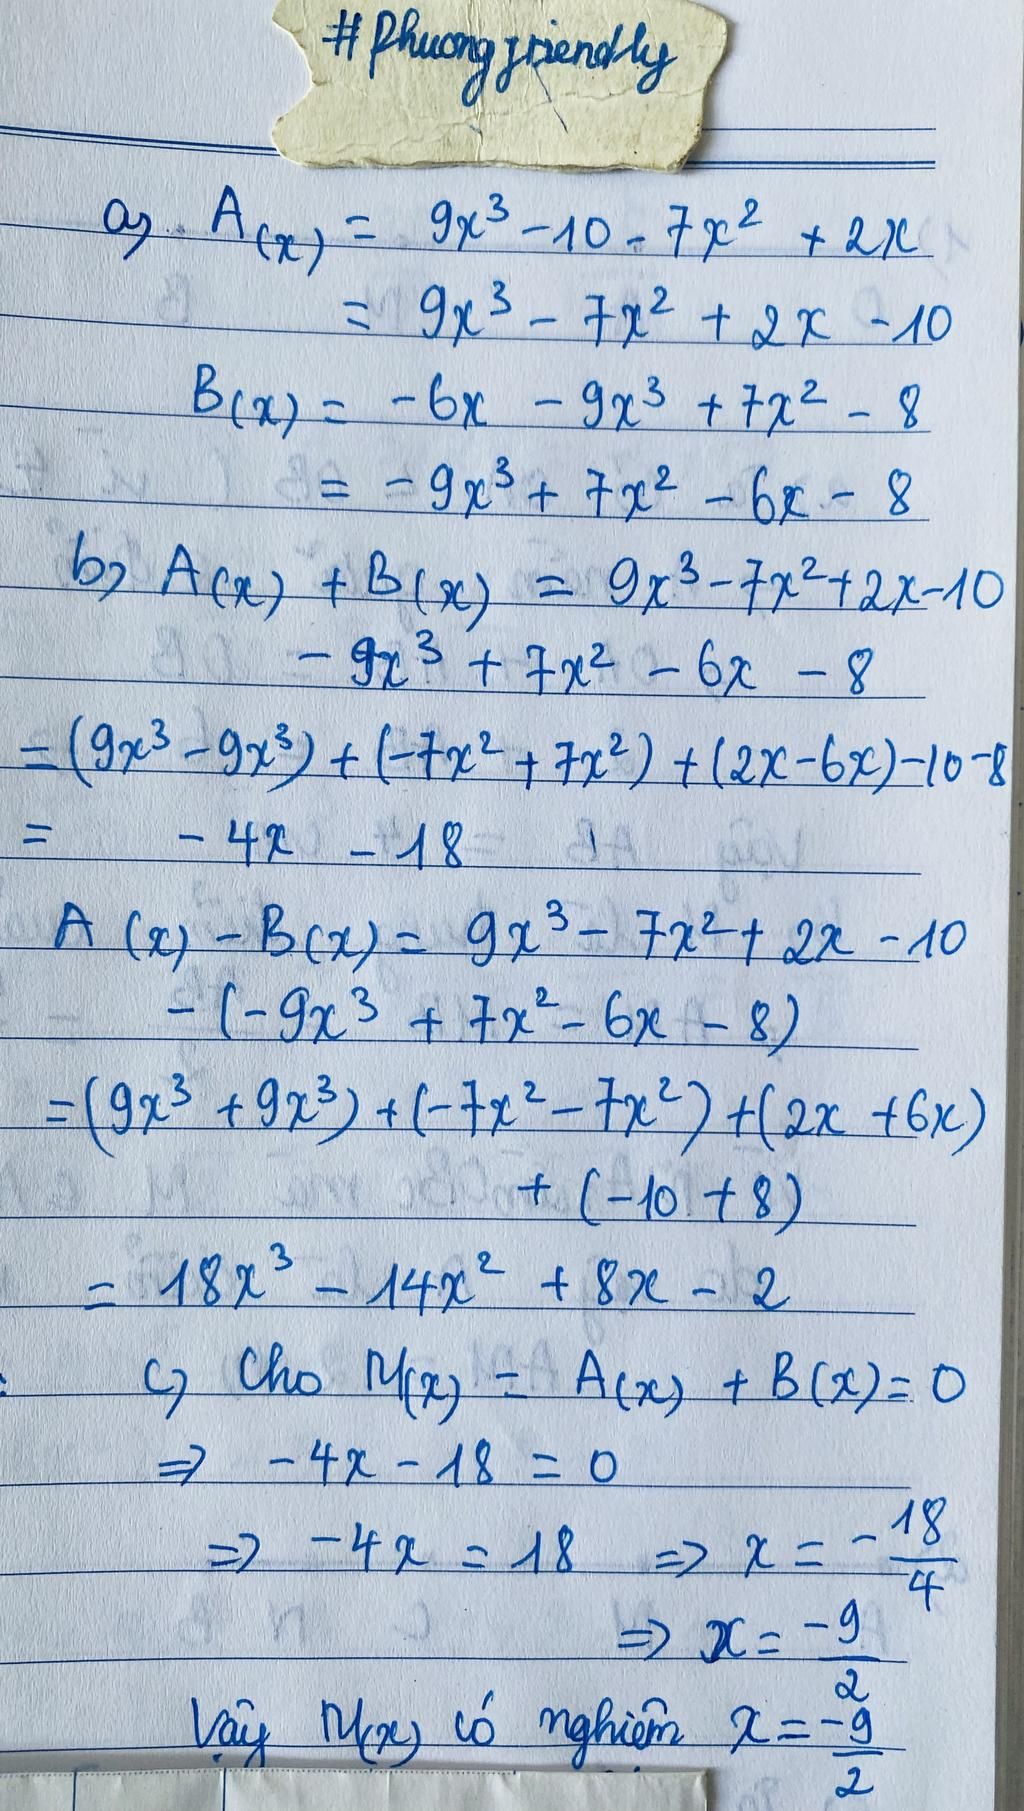 #Phuongfriendly
a, A(x) = 9x³ - 10 - 7x² + 2x
= 9x³ - 7x² + 2x - 10
B(x) = -6x - 9x³ + 7x² - 8
= -9x³ + 7x² - 6x - 8
b, A(x) + B(x) = 9x³ - 7x² + 2x - 10
- 9x³ + 7x² - 6x - 8
= (9x³ - 9x³) + (-7x² + 7x²) + (2x - 6x) - 10 - 8
= - 4x - 18
A(x) - B(x) = 9x³ - 7x² + 2x - 10
- (-9x³ + 7x² - 6x - 8)
= (9x³ + 9x³) + (-7x² - 7x²) + (2x + 6x)
+ (-10 + 8)
= 18x³ - 14x² + 8x - 2
c, Cho M(x) = A(x) + B(x) = 0
=> -4x - 18 = 0
=> -4x = 18 => x = -18/4
=> x = -9/2
Vậy M(x) có nghiệm x = -9/2